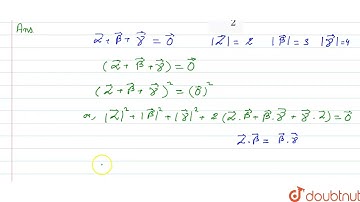 2
Ans
α⃗ + β⃗ + γ⃗ = 0⃗   |α⃗| = 2   |β⃗| = 3   |γ⃗| = 4
(α⃗ + β⃗ + γ⃗) = 0⃗
(α⃗ + β⃗ + γ⃗)² = (0⃗)²
a, |α⃗|² + |β⃗|² + |γ⃗|² + 2 (α⃗.β⃗ + β⃗.γ⃗ + γ⃗.α⃗) = 0
α⃗.β⃗ = β⃗.γ⃗
doubtnut